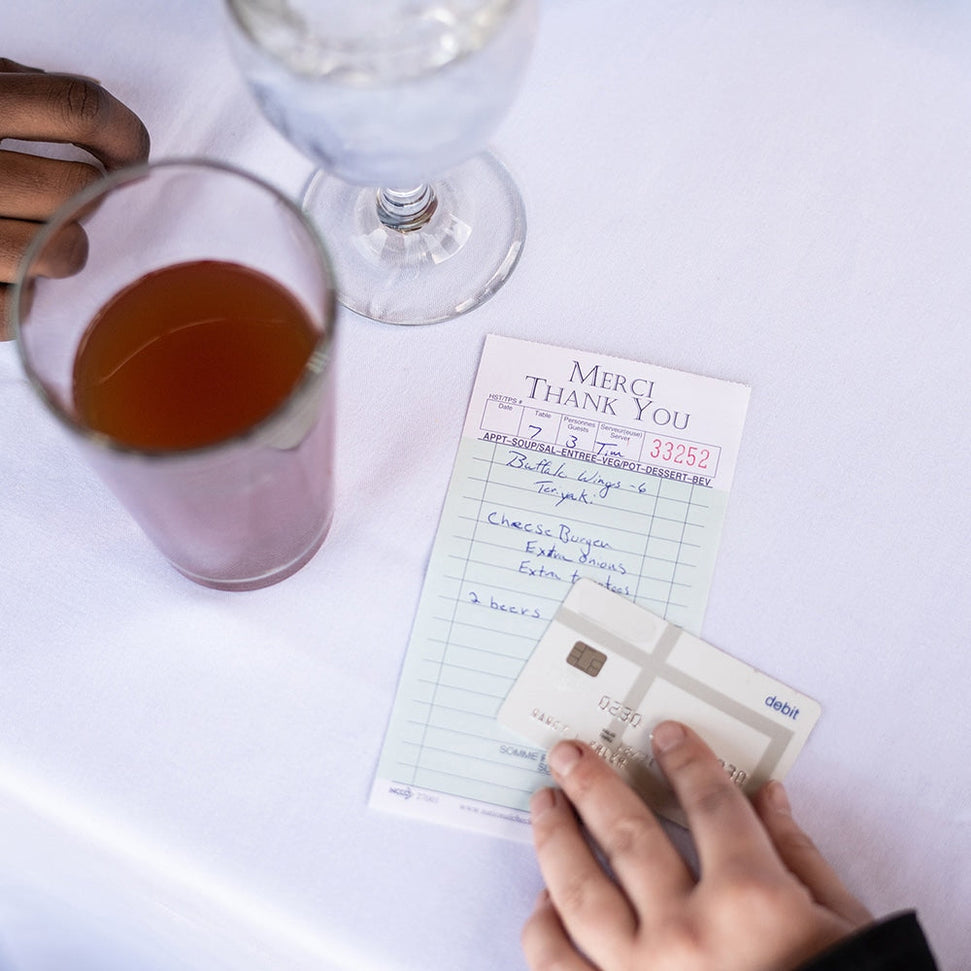 MERCI
THANK YOU
HST/TPS #
Date Table Personnes Guests Serveur(euse) Server
7 3 Tim 33252
APPT-SOUP/SAL-ENTREE-VEG/POT-DESSERT-BEV
Buffalo Wings -6
Teriyaki
Cheese Burger
Extra onions
Extra
2 beers
debit
0230
SOMME